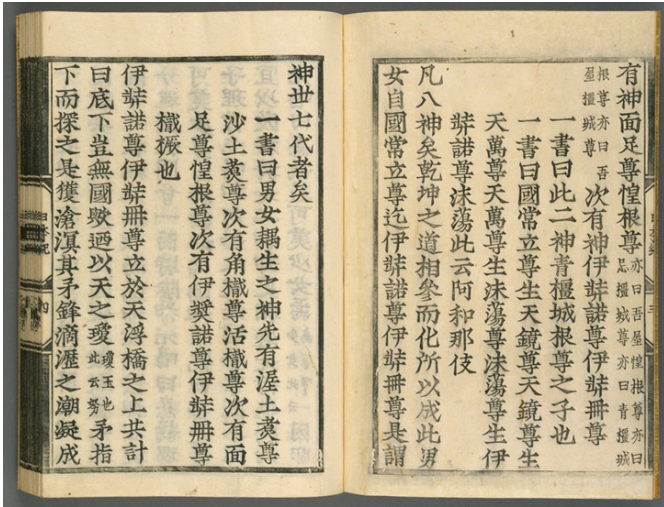 有神面足尊惶根尊亦曰吾屋惶根尊亦曰忌橿城尊亦曰青橿城
根尊亦曰吾屋橿城尊次有神伊弉諾尊伊弉冊尊
一書曰此二神青橿城根尊之子也
一書曰國常立尊生天鏡尊天鏡尊生
天萬尊天萬尊生沫蕩尊沫蕩尊生伊
弉諾尊沫蕩此云阿和那伎
凡八神矣乾坤之道相參而化所以成此男
女自國常立尊迄伊弉諾尊伊弉冊尊是謂
神世七代者矣
一書曰男女耦生之神先有渥土煑尊
沙土煑尊次有角樴尊活樴尊次有面
足尊惶根尊次有伊弉諾尊伊弉冊尊
樴橛也
伊弉諾尊伊弉冊尊立於天浮橋之上共計
曰底下豈無國歟廼以天之瓊瓊玉也此云努矛指
下而探之是獲滄溟其矛鋒滴瀝之潮凝成
四